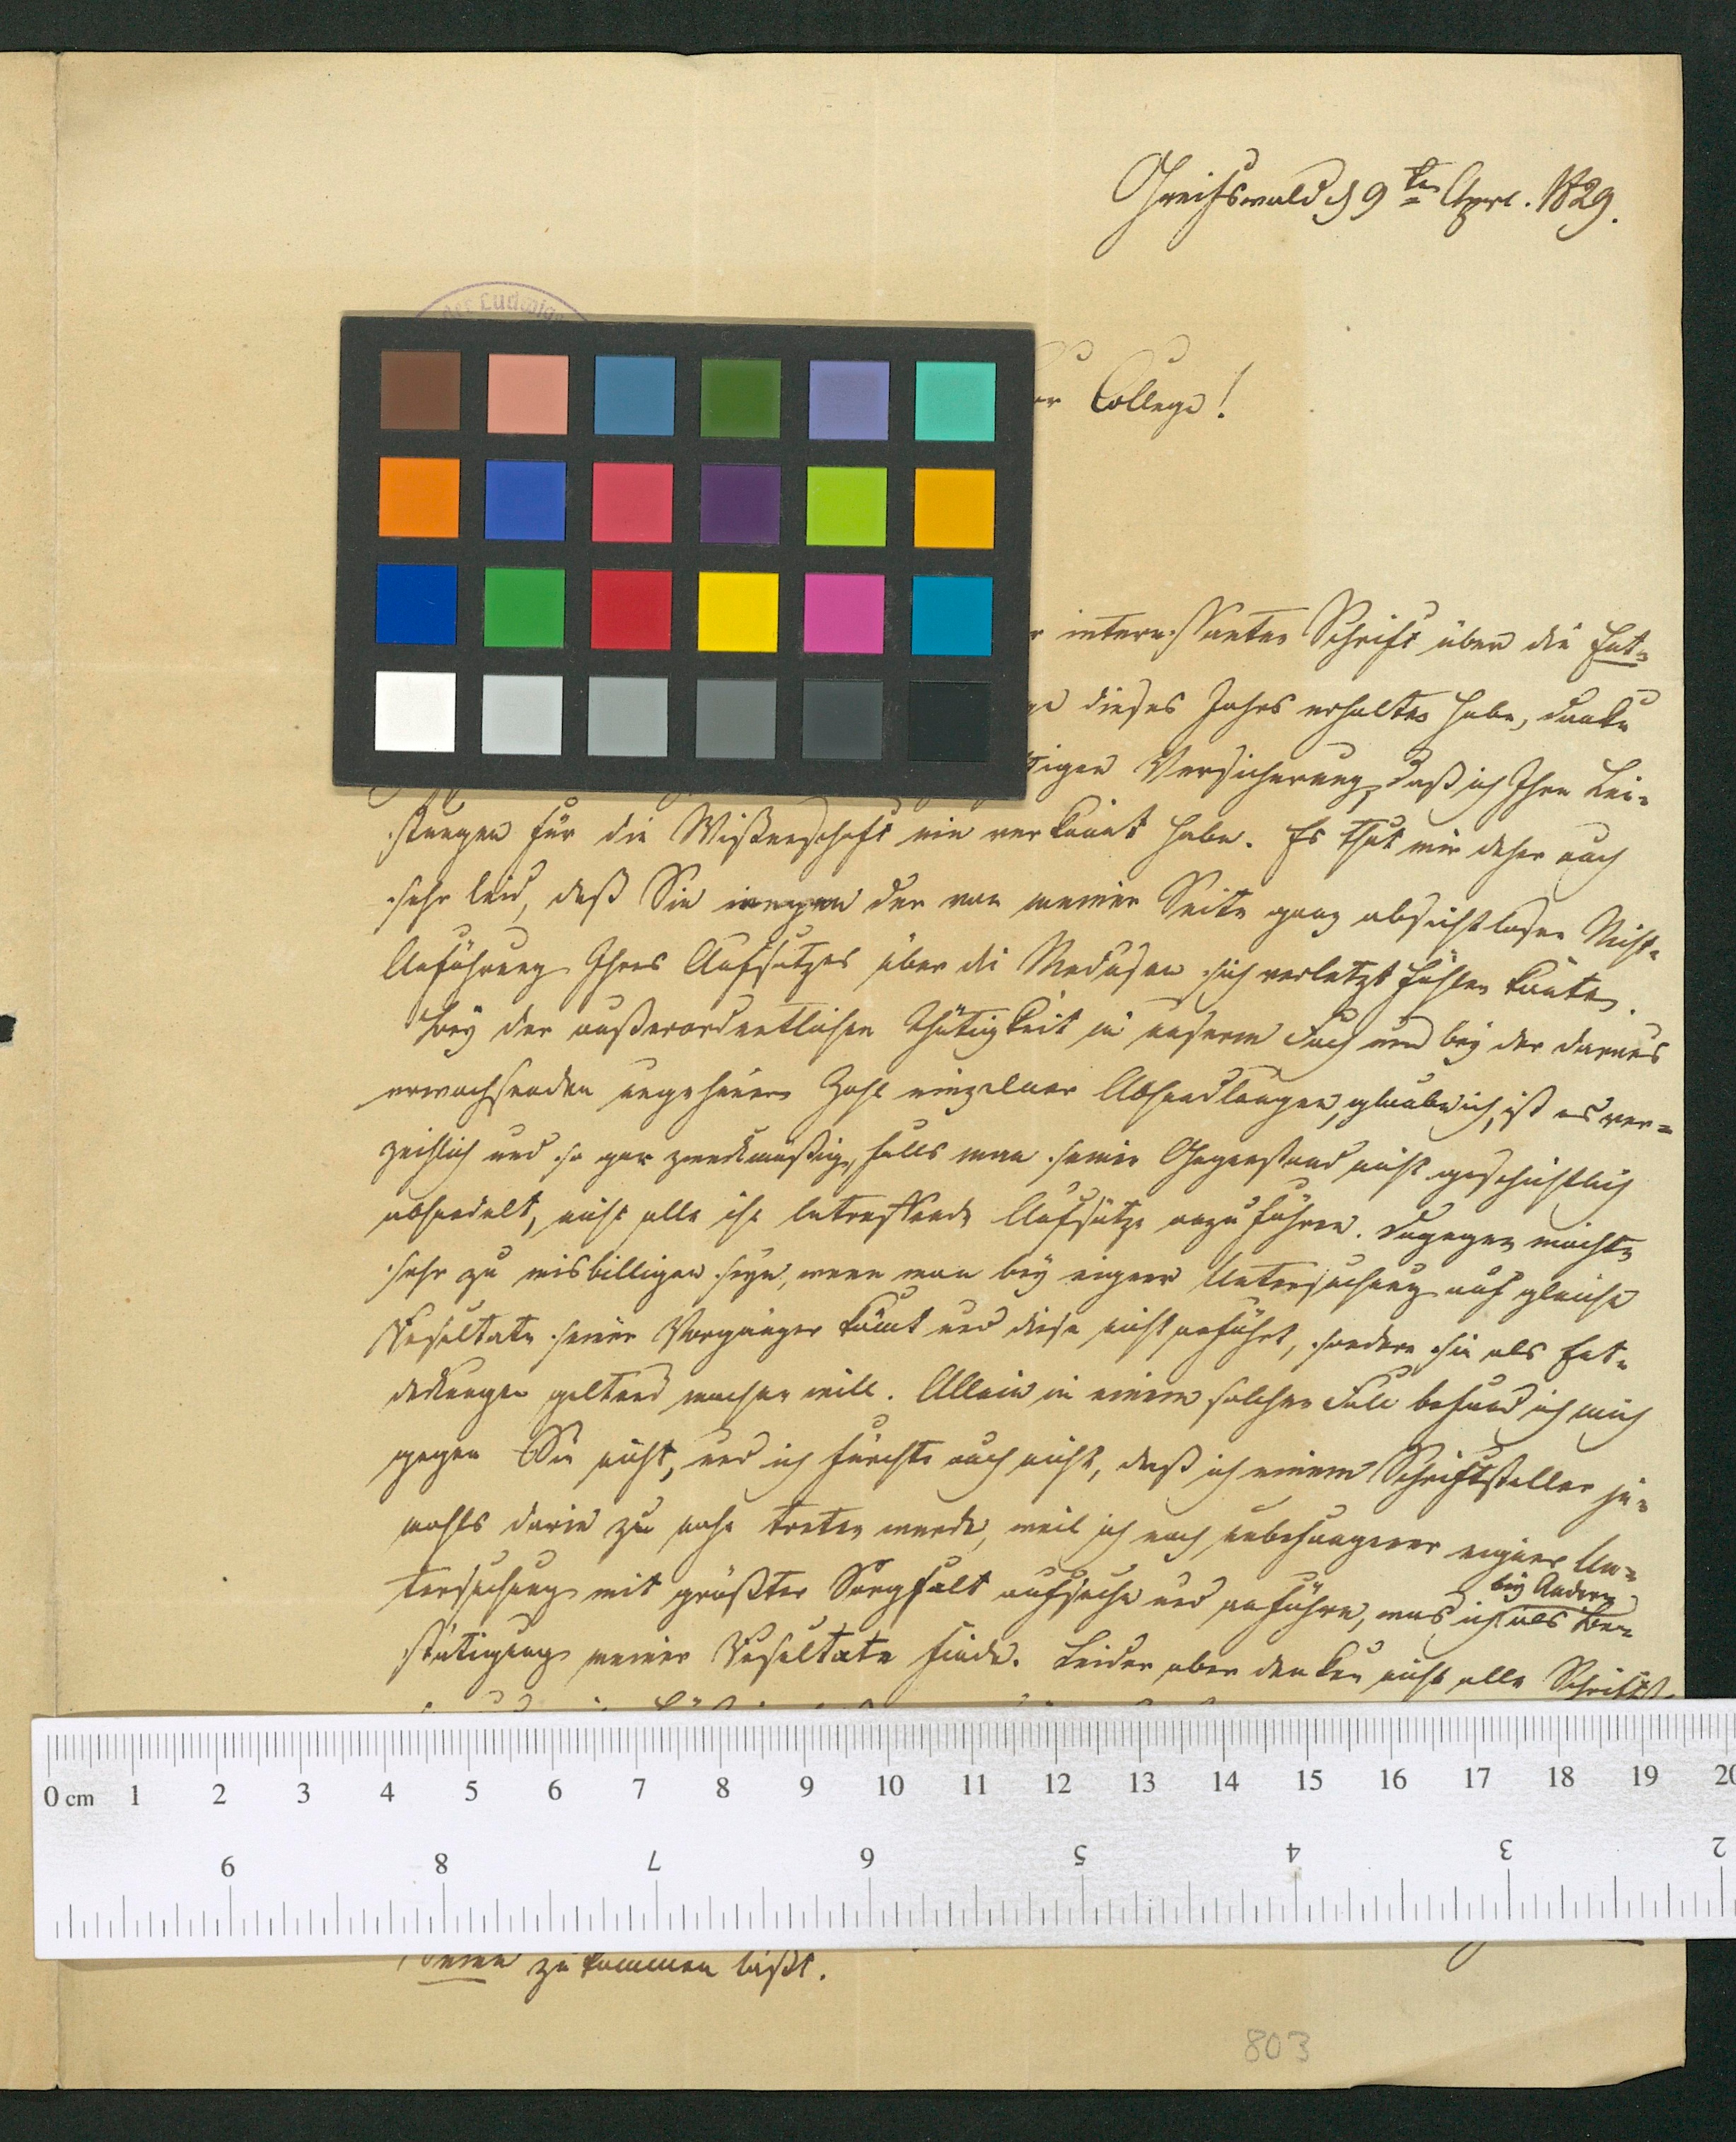 Greifswald d 9ten Aprl. 1829.
der Ludwigs
er College!
r interessanten Schrift über die Ent-
ge dieses Jahrs erhalten habe, danke
tigen Versicherung, daß ich Ihre Lei-
stungen für die Wißenschaft nie verkannt habe. Es thut mir daher auch
sehr leid, daß Sie wegen der von meiner Seite ganz absichtlosen Nicht-
Anführung Ihres Aufsatzes über die Medusen sich verletzt fühlen konten.
Bey der außerordentlichen Thätigkeit in unserem Fach und bey der daraus
erwachsenden ungeheuern Zahl einzelner Abhandlungen, glaube ich, ist es ver-
zeihlich und so gar zweckmäßig, falls man seinen Gegenstand nicht geschichtlich
abhandelt, nicht alle ihn betreffende Aufsätze anzuführen. Dagegen möchte
sehr zu misbilligen seyn, wenn man bey eigner Untersuchung auf gleiche
Resultate seiner Vorgänger kömt und diese nicht anführt, sondern sie als Ent-
deckungen geltend machen will. Allein in einem solchen Fall befand ich mich
gegen Sie nicht, und ich fürchte auch nicht, daß ich einem Schriftsteller je-
mahls darin zu nahe treten werde, weil ich nach unbefangener eigner Un-
bey Andern
tersuchung mit größter Sorgfalt aufsuche und anführe, was ich als Be-
stätigung meiner Resultate finde. Leider aber denken nicht alle Schriftst-
zu kommen läßt.
803
0 cm 1 2 3 4 5 6 7 8 9 10 11 12 13 14 15 16 17 18 19 20
9 8 7 6 5 4 3 2